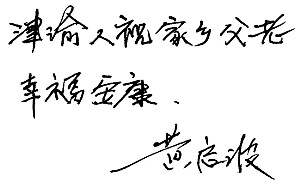 津渝人祝家乡父老
幸福安康、
黄波